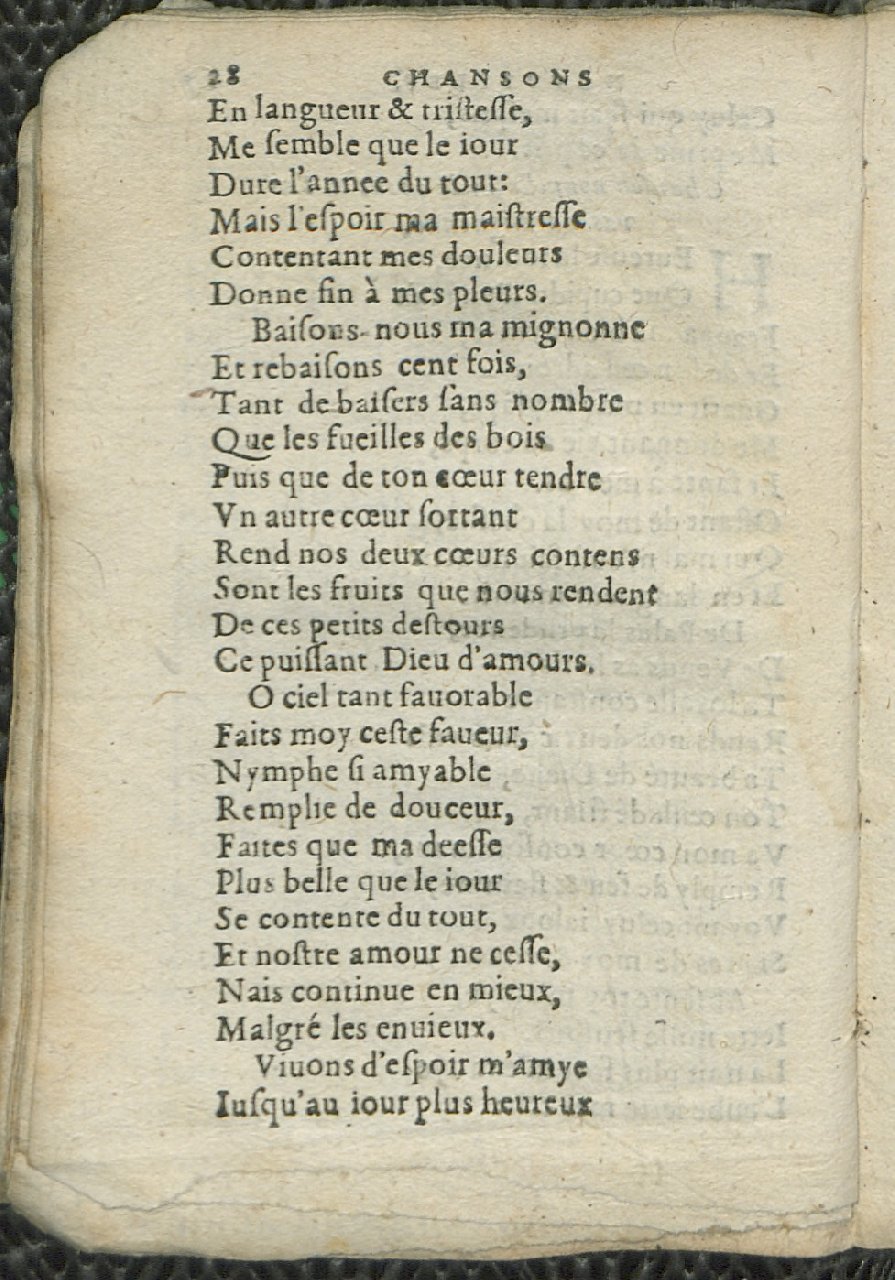 28 CHANSONS
En langueur & tristeſſe,
Me ſemble que le iour
Dure l'annee du tout:
Mais l'eſpoir ma maistreſſe
Contentant mes douleurs
Donne fin à mes pleurs.
Baiſons-nous ma mignonne
Et rebaiſons cent fois,
Tant de baiſers ſans nombre
Que les fueilles des bois
Puis que de ton cœur tendre
Vn autre cœur ſortant
Rend nos deux cœurs contens
Sont les fruits que nous rendent
De ces petits destours
Ce puiſſant Dieu d'amours.
O ciel tant fauorable
Faits moy ceste faueur,
Nymphe ſi amyable
Remplie de douceur,
Faites que ma deeſſe
Plus belle que le iour
Se contente du tout,
Et nostre amour ne ceſſe,
Nais continue en mieux,
Malgré les enuieux.
Viuons d'eſpoir m'amye
Iuſqu'au iour plus heureux